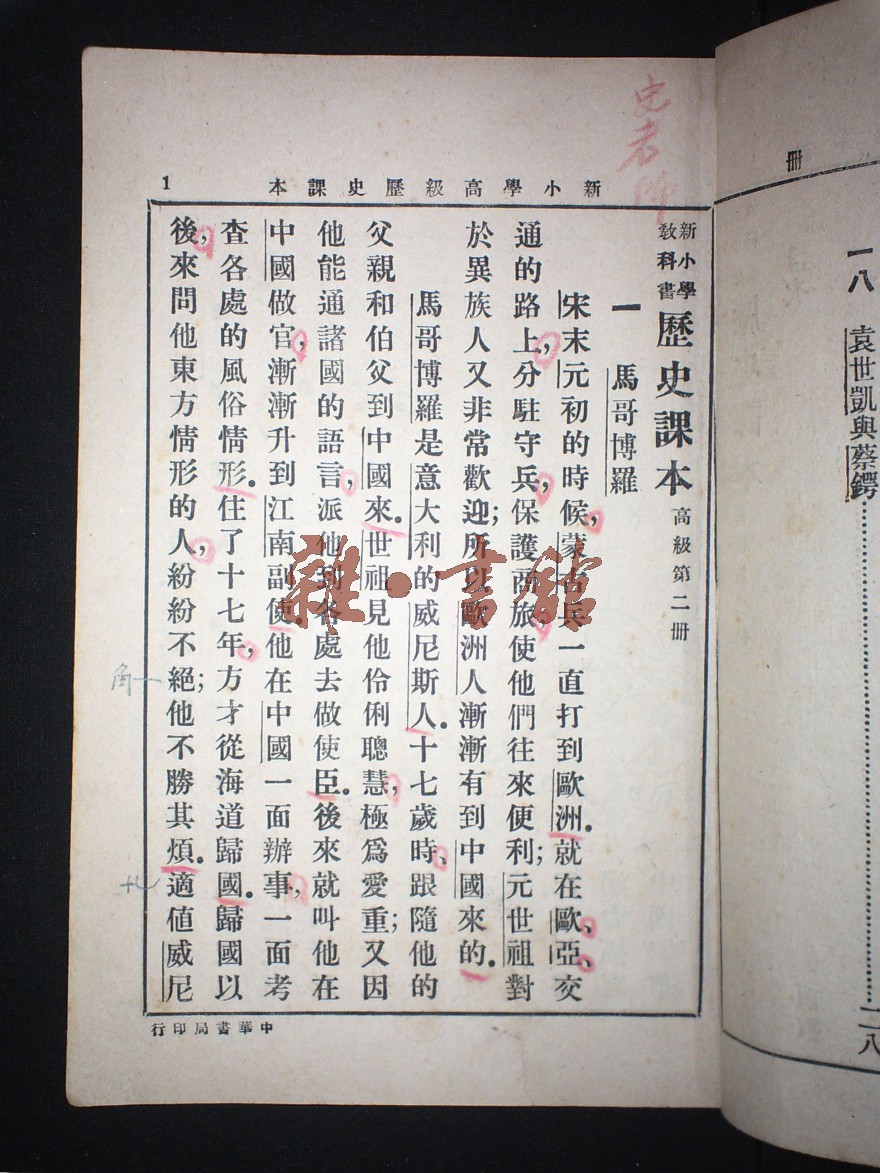 冊
一八 袁世凱與蔡鍔……………一二八
史老師
新小學高級歷史課本
1
新小學教科書 歷史課本 高級第二冊
一 馬哥博羅
宋末元初的時候，蒙古兵一直打到歐洲。就在歐、亞、交
通的路上，分駐守兵，保護商旅，使他們往來便利；元世祖對
於異族人又非常歡迎；所以歐洲人漸漸有到中國來的。
馬哥博羅是意大利的威尼斯人。十七歲時、跟隨他的
父親和伯父到中國來。世祖見他伶俐聰慧，極爲愛重；又因
他能通諸國的語言，派他到各處去做使臣。後來就叫他在
中國做官，漸漸升到江南副使。他在中國一面辦事，一面考
查各處的風俗情形。住了十七年，方才從海道歸國。歸國以
後，來問他東方情形的人，紛紛不絕；他不勝其煩。適値威尼
中華書局印行
雜·書館